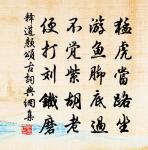 猛虎當路坐
游魚脚底過
不覺紫胡老
便打刘鐵磨
釋道顏頌古詞典網集